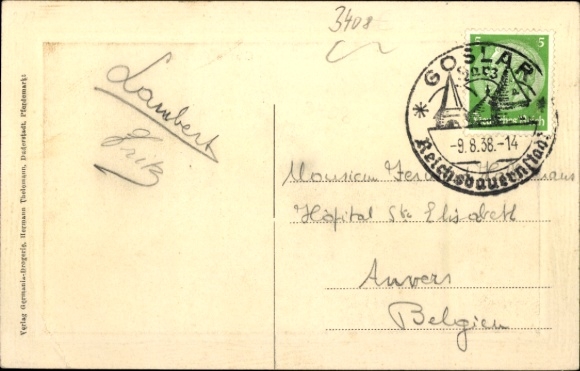 3408
5 5
Deutsches Reich
GOSLAR
-9.8.38.-14
Reichsbauernstadt
Lambert
Erik
Monsieur
Hôpital Ste Elisabeth
Anvers
Belgien
Verlag Germania-Drogerie, Hermann Thelemann, Duderstadt, Pferdemarkt